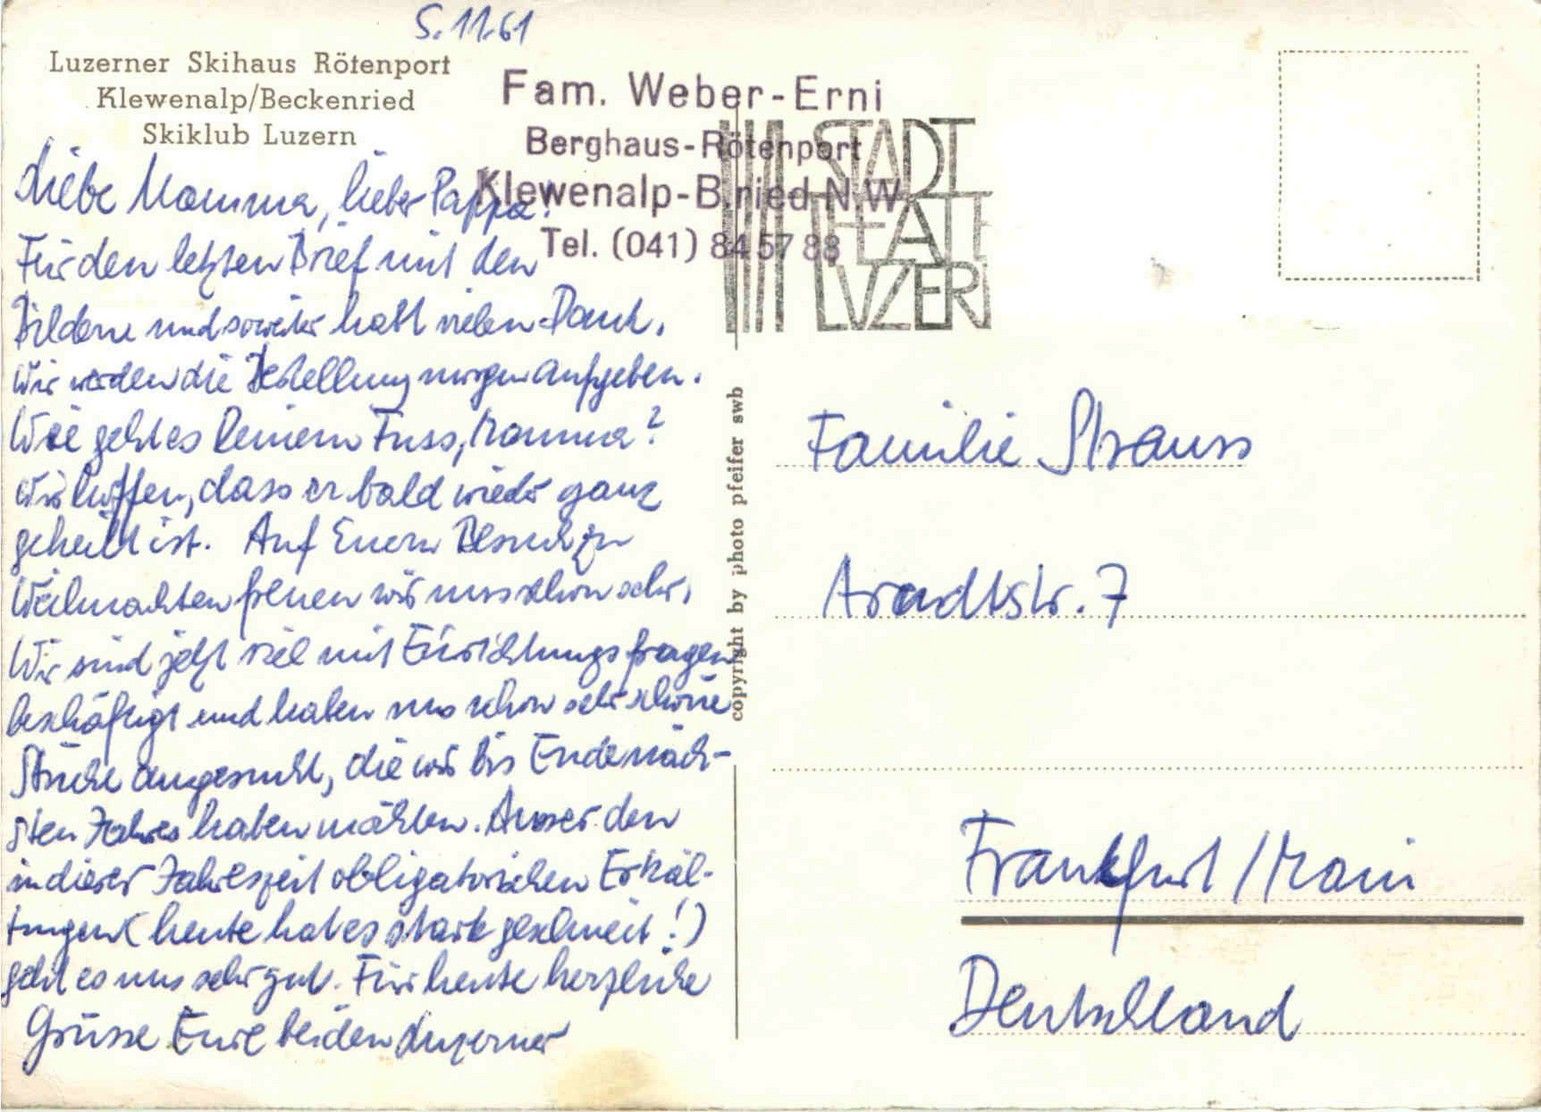 5.11.61
Luzerner Skihaus Rötenport
Klewenalp/Beckenried
Skiklub Luzern
Fam. Weber-Erni
Berghaus-Rötenport
Klewenalp-B.ried N.W.
Tel. (041) 84 57 88
STADT
THEATE
LUZERN
Liebe Mamma, lieber Pappa!
Für den letzten Brief mit den
Bildern und so weiter habt vielen Dank.
Wir werden die Bestellung morgen aufgeben.
Wie geht es Deinem Fuss, Mamma?
Wir hoffen, dass er bald wieder ganz
geheilt ist. Auf Euern Besuch zu
Weihnachten freuen wir uns schon sehr.
Wir sind jetzt viel mit Einrichtungsfragen
beschäftigt und haben uns schon sehr schöne
Stücke ausgesucht, die wir bis Ende näch-
sten Jahres haben möchten. Ausser den
in dieser Jahreszeit obligatorischen Erkäl-
tungen (heute hat es stark geschneit!)
geht es uns sehr gut. Für heute herzliche
Grüsse Eure beiden Luzerner
copyright by photo pfeifer swb
Familie Strauss
Arndtstr. 7
Frankfurt/Main
Deutschland